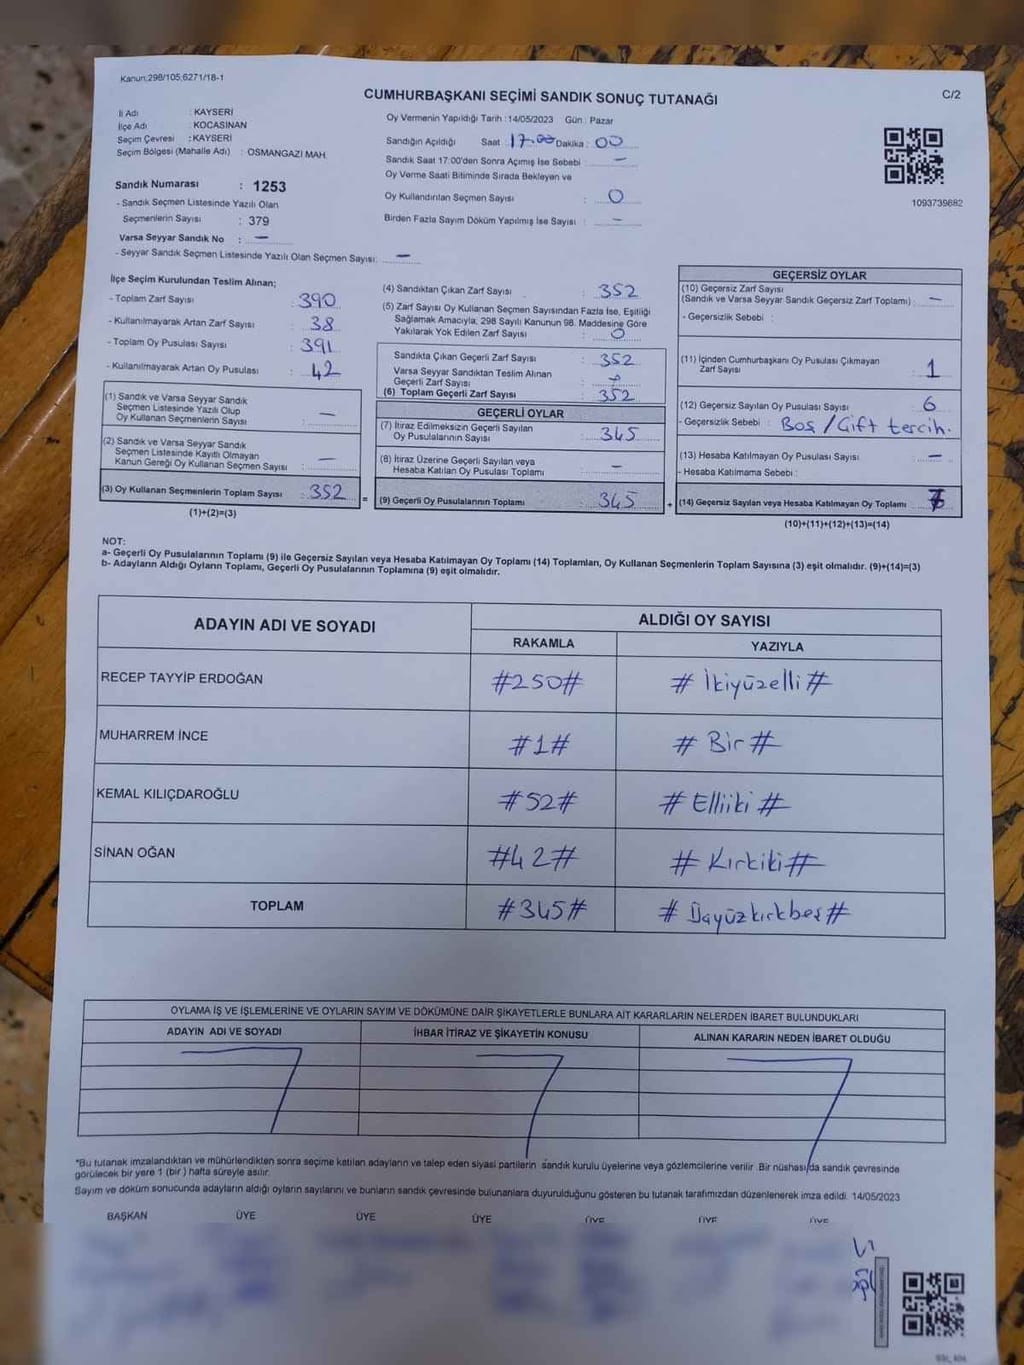 Kanun:298/105;6271/18-1
CUMHURBAŞKANI SEÇİMİ SANDIK SONUÇ TUTANAĞI
C/2
İl Adı : KAYSERİ
İlçe Adı : KOCASİNAN
Seçim Çevresi : KAYSERİ
Seçim Bölgesi (Mahalle Adı) : OSMANGAZİ MAH.
Sandık Numarası : 1253
- Sandık Seçmen Listesinde Yazılı Olan
Seçmenlerin Sayısı : 379
Varsa Seyyar Sandık No : —
- Seyyar Sandık Seçmen Listesinde Yazılı Olan Seçmen Sayısı: —
Oy Vermenin Yapıldığı Tarih : 14/05/2023 Gün : Pazar
Sandığın Açıldığı Saat : 17.00 Dakika : 00
Sandık Saat 17:00'den Sonra Açımış İse Sebebi : —
Oy Verme Saati Bitiminde Sırada Bekleyen ve
Oy Kullandırılan Seçmen Sayısı : 0
Birden Fazla Sayım Döküm Yapılmış İse Sayısı : —
1093739682
İlçe Seçim Kurulundan Teslim Alınan;
- Toplam Zarf Sayısı : 390
- Kullanılmayarak Artan Zarf Sayısı : 38
- Toplam Oy Pusulası Sayısı : 391
- Kullanılmayarak Artan Oy Pusulası : 42
(1) Sandık ve Varsa Seyyar Sandık
Seçmen Listesinde Yazılı Olup
Oy Kullanan Seçmenlerin Sayısı : —
(2) Sandık ve Varsa Seyyar Sandık
Seçmen Listesinde Kayıtlı Olmayan
Kanun Gereği Oy Kullanan Seçmen Sayısı : —
(3) Oy Kullanan Seçmenlerin Toplam Sayısı : 352 =
(1)+(2)=(3)
(4) Sandıktan Çıkan Zarf Sayısı : 352
(5) Zarf Sayısı Oy Kullanan Seçmen Sayısından Fazla İse, Eşitliği
Sağlamak Amacıyla, 298 Sayılı Kanunun 98. Maddesine Göre
Yakılarak Yok Edilen Zarf Sayısı : 0
Sandıkta Çıkan Geçerli Zarf Sayısı : 352
Varsa Seyyar Sandıktan Teslim Alınan
Geçerli Zarf Sayısı :
(6) Toplam Geçerli Zarf Sayısı : 352
GEÇERLİ OYLAR
(7) İtiraz Edilmeksizin Geçerli Sayılan
Oy Pusulalarının Sayısı : 345
(8) İtiraz Üzerine Geçerli Sayılan veya
Hesaba Katılan Oy Pusulası Toplamı : —
(9) Geçerli Oy Pusulalarının Toplamı : 345 +
GEÇERSİZ OYLAR
(10) Geçersiz Zarf Sayısı
(Sandık ve Varsa Seyyar Sandık Geçersiz Zarf Toplamı) : —
- Geçersizlik Sebebi :
(11) İçinden Cumhurbaşkanı Oy Pusulası Çıkmayan
Zarf Sayısı : 1
(12) Geçersiz Sayılan Oy Pusulası Sayısı : 6
- Geçersizlik Sebebi : Boş / Çift tercih.
(13) Hesaba Katılmayan Oy Pusulası Sayısı : —
- Hesaba Katılmama Sebebi :
(14) Geçersiz Sayılan veya Hesaba Katılmayan Oy Toplamı : 7
(10)+(11)+(12)+(13)=(14)
NOT:
a- Geçerli Oy Pusulalarının Toplamı (9) ile Geçersiz Sayılan veya Hesaba Katılmayan Oy Toplamı (14) Toplamları, Oy Kullanan Seçmenlerin Toplam Sayısına (3) eşit olmalıdır. (9)+(14)=(3)
b- Adayların Aldığı Oyların Toplamı, Geçerli Oy Pusulalarının Toplamına (9) eşit olmalıdır.
ADAYIN ADI VE SOYADI
ALDIĞI OY SAYISI
RAKAMLA YAZIYLA
RECEP TAYYİP ERDOĞAN #250# # İkiyüzelli #
MUHARREM İNCE #1# # Bir #
KEMAL KILIÇDAROĞLU #52# # Elliiki #
SİNAN OĞAN #42# # Kırkiki #
TOPLAM #345# # Üçyüzkırkbeş #
OYLAMA İŞ VE İŞLEMLERİNE VE OYLARIN SAYIM VE DÖKÜMÜNE DAİR ŞİKAYETLERLE BUNLARA AİT KARARLARIN NELERDEN İBARET BULUNDUKLARI
ADAYIN ADI VE SOYADI İHBAR İTİRAZ VE ŞİKAYETİN KONUSU ALINAN KARARIN NEDEN İBARET OLDUĞU
*Bu tutanak imzalandıktan ve mühürlendikten sonra seçime katılan adayların ve talep eden siyasi partilerin sandık kurulu üyelerine veya gözlemcilerine verilir. Bir nüshası da sandık çevresinde
görülecek bir yere 1 (bir) hafta süreyle asılır.
Sayım ve döküm sonucunda adayların aldığı oyların sayılarını ve bunların sandık çevresinde bulunanlara duyurulduğunu gösteren bu tutanak tarafımızdan düzenlenerek imza edildi. 14/05/2023
BAŞKAN ÜYE ÜYE ÜYE ÜYE ÜYE ÜYE